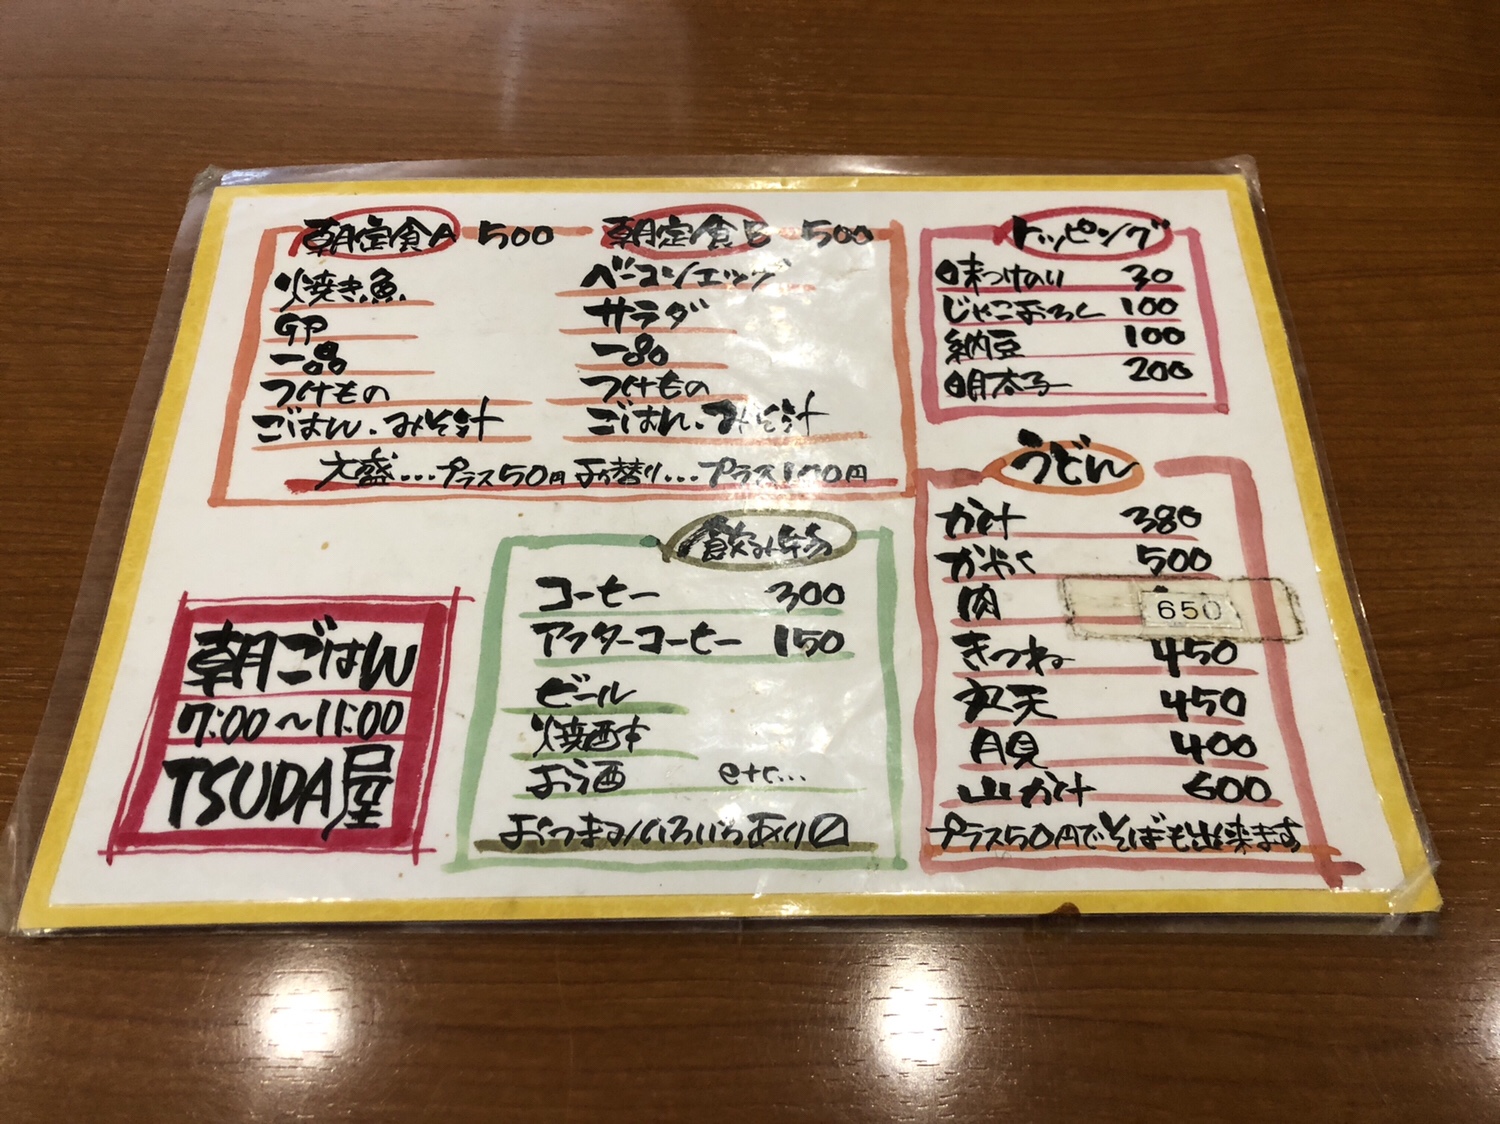 朝定食A 500
焼き魚
GP
一品
つけもの
ごはん、みそ汁
朝定食B 500
ベーコンエッグ
サラダ
一品
つけもの
ごはん、みそ汁
大盛…プラス50円 お替り…プラス100円
トッピング
味つけのり 30
じゃこおろし 100
納豆 100
明太子 200
うどん
かけ 380
かやく 500
肉 650
きつね 450
丸天 450
月見 400
山かけ 600
プラス50円でそばも出来ます
飲み物
コーヒー 300
アフターコーヒー 150
ビール
焼酎
お酒 etc...
おつまみいろいろあり〼
朝ごはん
7:00〜11:00
TSUDA屋